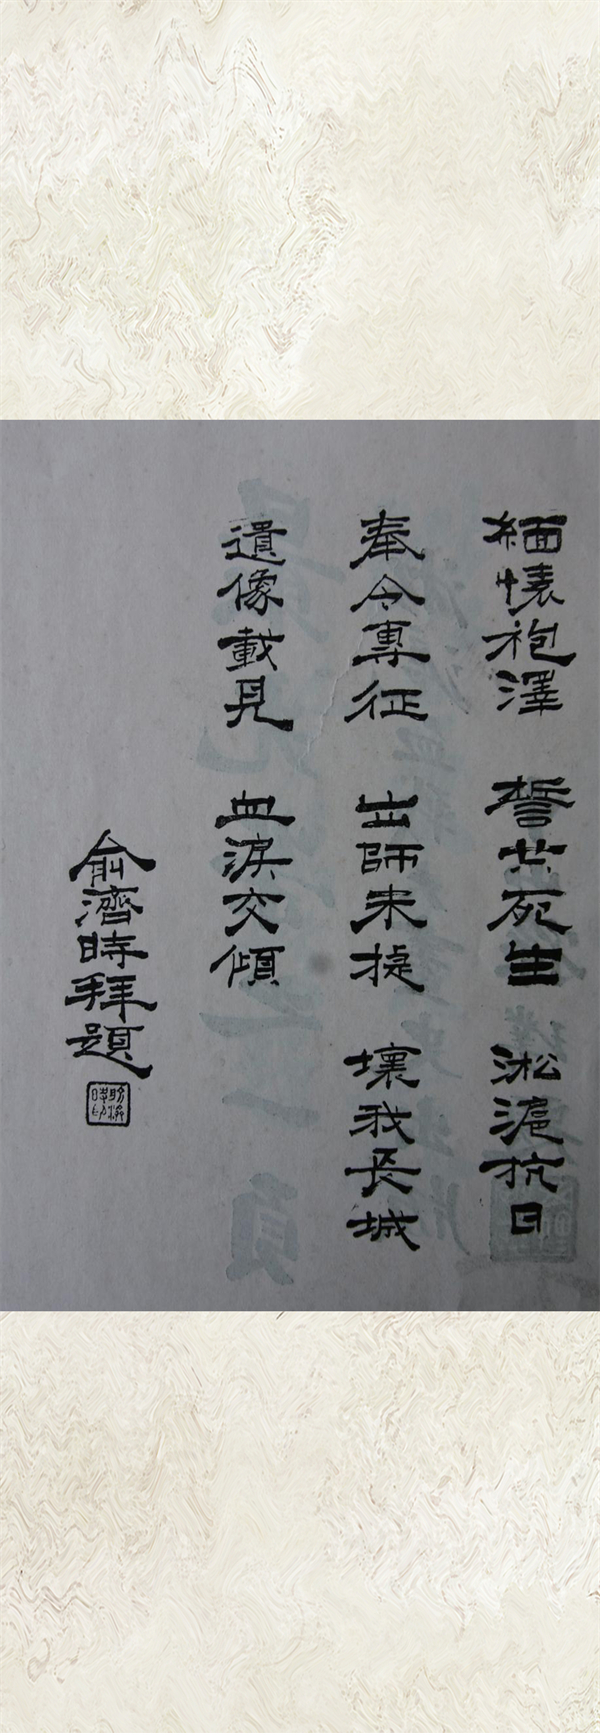 緬懐袍澤 誓共死生 淞滬抗日
奉令專征 出師未捷 壞我長城
遺像載見 血淚交傾
俞濟時拜題